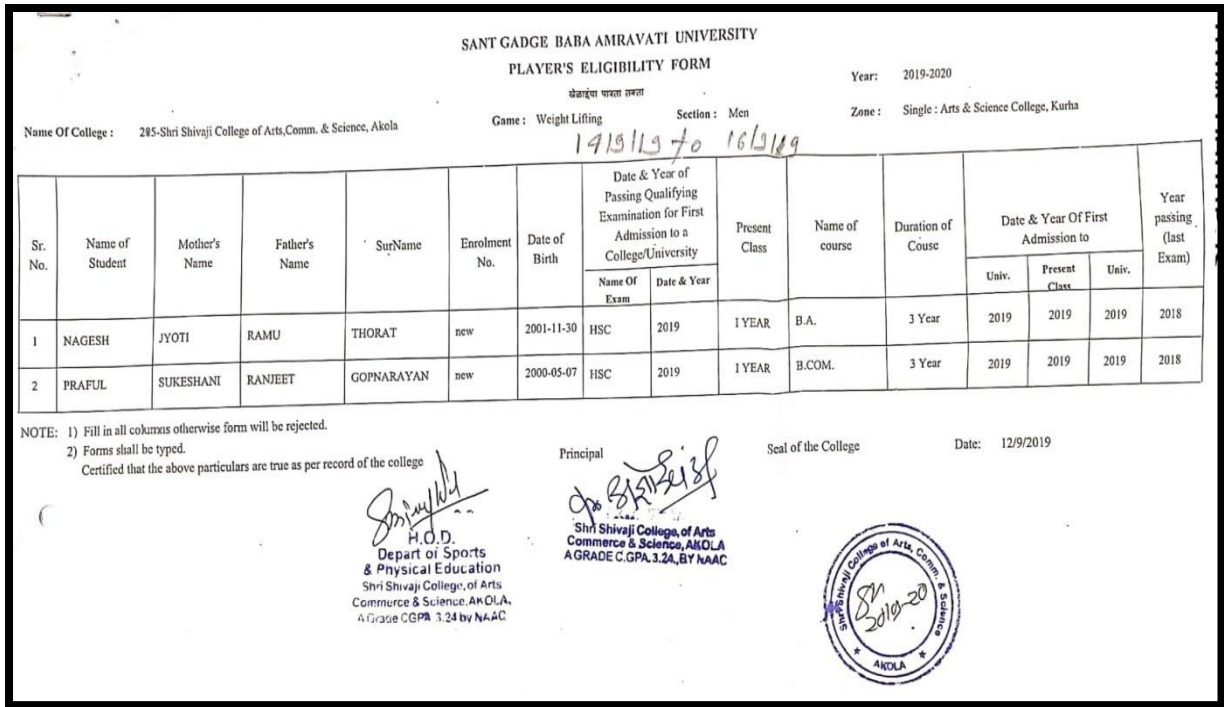 SANT GADGE BABA AMRAVATI UNIVERSITY
PLAYER'S ELIGIBILITY FORM
खेळाडूंचा पात्रता तक्ता
Year: 2019-2020
Name Of College : 285-Shri Shivaji College of Arts,Comm. & Science, Akola Game : Weight Lifting Section : Men Zone : Single : Arts & Science College, Kurha
14/9/19 to 16/9/19
Sr. No. Name of Student Mother's Name Father's Name SurName Enrolment No. Date of Birth Date & Year of Passing Qualifying Examination for First Admission to a College/University Present Class Name of course Duration of Couse Date & Year Of First Admission to Year passing (last Exam)
Name Of Exam Date & Year Univ. Present Class Univ.
1 NAGESH JYOTI RAMU THORAT new 2001-11-30 HSC 2019 I YEAR B.A. 3 Year 2019 2019 2019 2018
2 PRAFUL SUKESHANI RANJEET GOPNARAYAN new 2000-05-07 HSC 2019 I YEAR B.COM. 3 Year 2019 2019 2019 2018
NOTE: 1) Fill in all columns otherwise form will be rejected.
2) Forms shall be typed.
Certified that the above particulars are true as per record of the college
Principal Seal of the College Date: 12/9/2019
H.O.D.
Depart of Sports
& Physical Education
Shri Shivaji College, of Arts
Commerce & Science, AKOLA,
A Grade CGPA 3.24 by NAAC
Shri Shivaji College, of Arts
Commerce & Science, AKOLA
A GRADE C.GPA.3.24, BY NAAC
Shri Shivaji College of Arts, Comm. & Science
2019-20
AKOLA